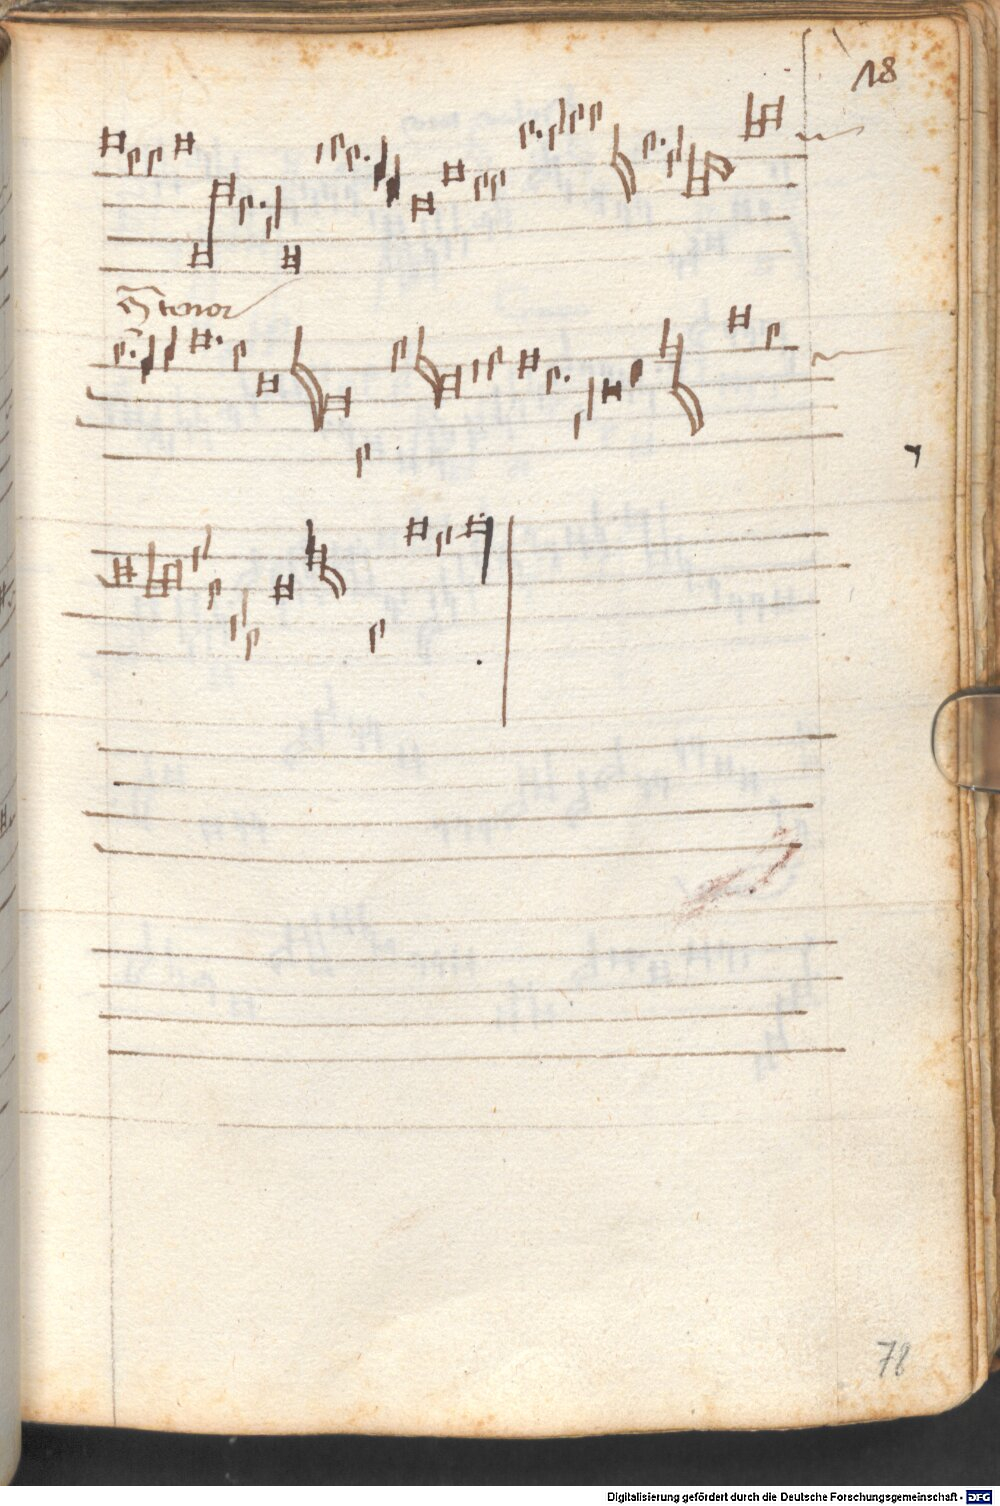 18
tenor
78
Digitalisierung gefördert durch die Deutsche Forschungsgemeinschaft - DFG